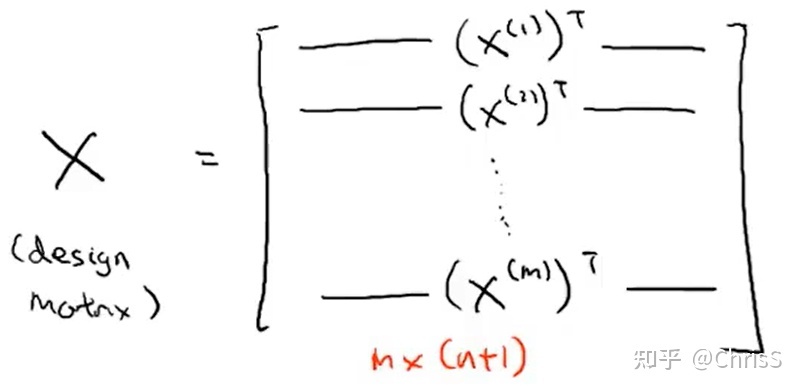 X = [ — (x^(1))^T —
— (x^(2))^T —
⋮
— (x^(m))^T — ]
(design
matrix)
m x (n+1)
知乎 @ChrisS